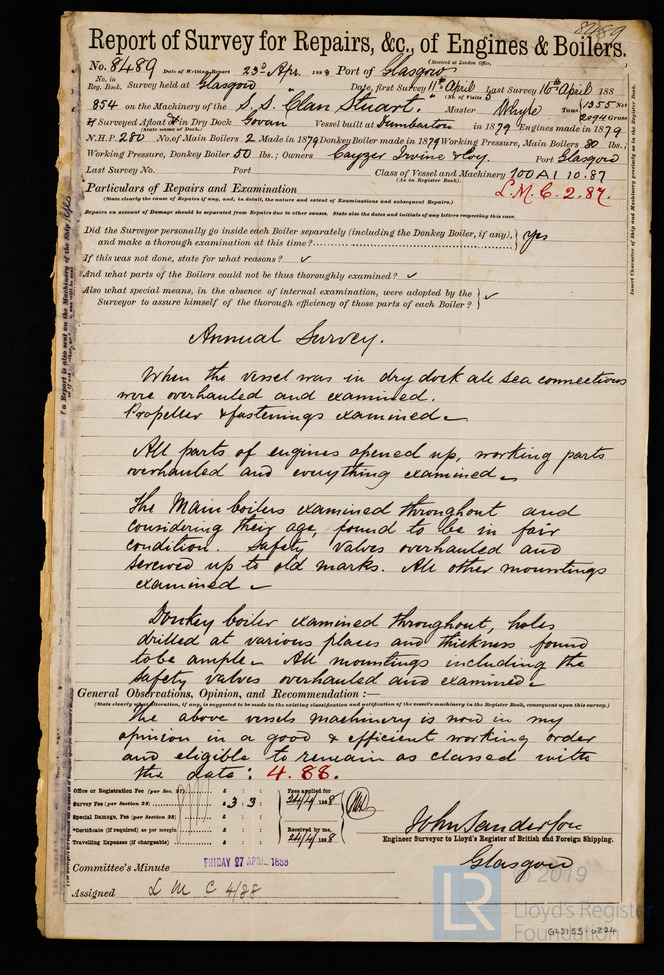 8489
Report of Survey for Repairs, &c., of Engines & Boilers.
(Received at London Office,
No. 8489 Date of Writing Report 23d Apr. 1888 Port of Glasgow
No. in Reg. Book. Survey held at Glasgow Date, first Survey 11th April Last Survey 16th April 188
(No. of Visits 3
854 on the Machinery of the S. S. "Clan Stuart" Master Whyte Tons 1355 Net
2094 Gross
If Surveyed Afloat or in Dry Dock Govan Vessel built at Dumbarton in 1879 Engines made in 1879
(State name of Dock.)
N.H.P. 280 No. of Main Boilers 2 Made in 1879 Donkey Boiler made in 1879 Working Pressure, Main Boilers 80 lbs;
Working Pressure, Donkey Boiler 50 lbs; Owners Cayzer Irvine & Coy. Port Glasgow
Last Survey No. Port Class of Vessel and Machinery 100 A1 10.87
(As in Register Book).
L.M.C. 2.87.
Particulars of Repairs and Examination
(State clearly the cause of Repairs if any, and, in detail, the nature and extent of Examinations and subsequent Repairs.)
Repairs on account of Damage should be separated from Repairs due to other causes. State also the dates and initials of any letters respecting this case.
Did the Surveyor personally go inside each Boiler separately (including the Donkey Boiler, if any), and make a thorough examination at this time? yes
If this was not done, state for what reasons? ✓
And what parts of the Boilers could not be thus thoroughly examined? ✓
Also what special means, in the absence of internal examination, were adopted by the
Surveyor to assure himself of the thorough efficiency of those parts of each Boiler? ✓
Annual Survey.
When the vessel was in dry dock all sea connections
were overhauled and examined.
Propeller & fastenings examined
All parts of engines opened up, working parts
overhauled and everything examined
The Main boilers examined throughout and
considering their age, found to be in fair
condition. Safety valves overhauled and
screwed up to old marks. All other mountings
examined
Donkey boiler examined throughout, holes
drilled at various places and thickness found
to be ample. All mountings including the
safety valves overhauled and examined
General Observations, Opinion, and Recommendation:—
(State clearly what alteration, if any, is suggested to be made in the existing classification and notification of the vessel's machinery in the Register Book, consequent upon this survey.)
The above vessels machinery is now in my
opinion in a good & efficient working order
and eligible to remain as classed with
the date: 4.88.
Office or Registration Fee (per Sec. 27) £ : :
Survey Fee (per Section 28) £ 3 : 3 :
Special Damage, Fee (per Section 28) £ : :
*Certificate (if required) as per margin £ : :
Travelling Expenses (if chargeable) £ : :
Fees applied for
24/4 1888
Received by me,
24/4 1888
John Sanderson
Engineer Surveyor to Lloyd's Register of British and Foreign Shipping.
Glasgow
Committee's Minute FRIDAY 27 APRIL 1888
Assigned L M C 4/88
Insert Character of Ship and Machinery precisely as in the Register Book.
If a Report is also sent on the Machinery of the Ship
LR
© 2019
Lloyd's Register
Foundation
GLS155-0224